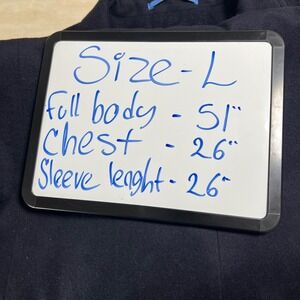 Size-L
Full body - 51"
Chest - 26"
Sleeve lenght - 26"